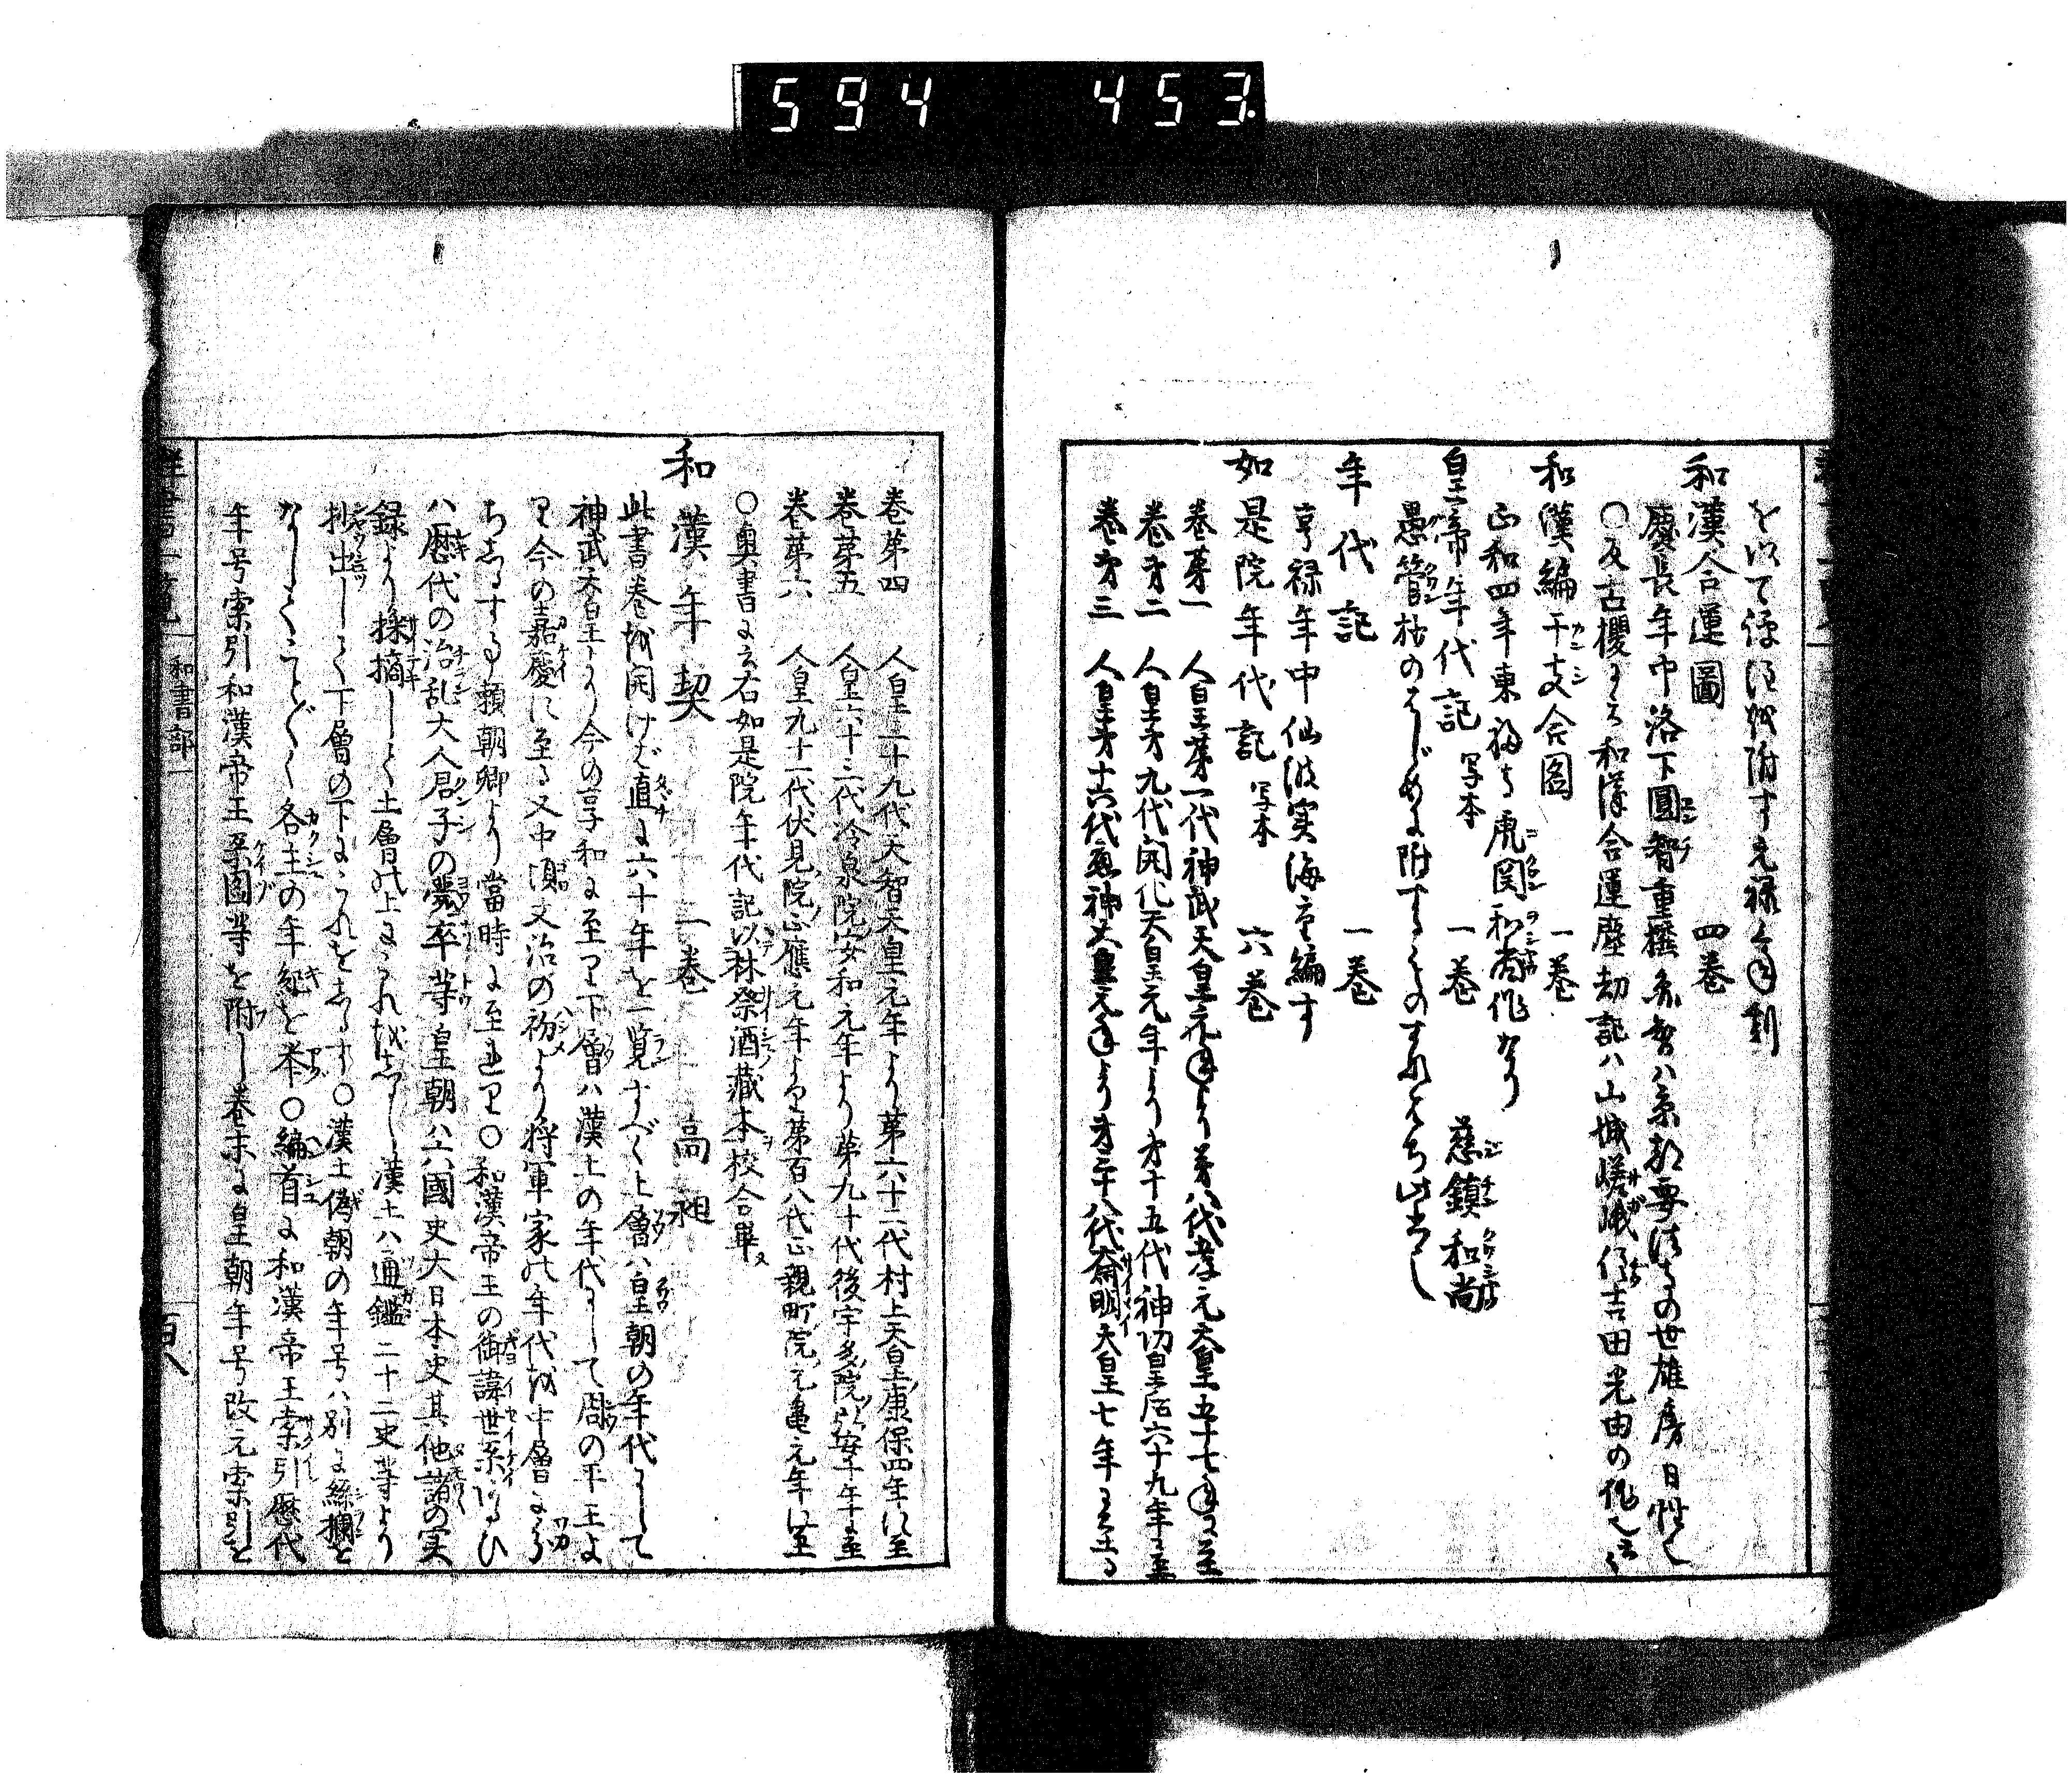 594 453.
を以て標注を附す元禄年刻
和漢合運圖 四巻
慶長年中洛下圓智重撰圓智ハ京都要法寺の世雄房日性也
○反古櫻に云和漢合運塵劫記ハ山城嵯峨住吉田光由の作也云云
和漢編干支合圖 一巻
正和四年東福寺虎関和尚作なり
皇帝年代記 写本 一巻 慈鎮和尚
愚管抄のはじめに附するもの
年代記 一巻
享禄年中仙波実海編す
如是院年代記 写本 六巻
巻第一 人皇第一代神武天皇元年より第八代孝元天皇五十七年に至
巻第二 人皇第九代開化天皇元年より第十五代神功皇后六十九年に至
巻第三 人皇第十六代應神天皇元年より第三十八代斎明天皇七年に至る
巻第四 人皇三十九代天智天皇元年より第六十二代村上天皇康保四年に至
巻第五 人皇六十三代冷泉院安和元年より第九十代後宇多院弘安十年に至
巻第六 人皇九十一代伏見院正應元年より第百八代正親町院元亀元年に至
○奥書に云右如是院年代記以林祭酒蔵本校合畢
和漢年契 一巻 高昶
此書巻を開けば直に六十年を一覧すべく上層ハ皇朝の年代にして
神武天皇より今の享和に至り下層ハ漢土の年代にして周の平王よ
り今の嘉慶に至る又中頃文治の初より将軍家の年代を中層にわか
ちしるする事頼朝卿より當時に至れり○和漢帝王の御諱世系ならひ
ハ歴代の治乱大人君子の薨卒等皇朝ハ六國史大日本史其他諸の実
録より採摘して上層の上にこれをしるし漢土ハ通鑑二十二史等より
抄出して下層の下にこれをしるす○漢土偽朝の年号ハ別に絲欄を
なしてことごとく各主の年紀を挙○編首に和漢帝王索引歴代
年号索引和漢帝王系圖等を附し巻末に皇朝年号改元索引を
群書一覧 和書部一 百八